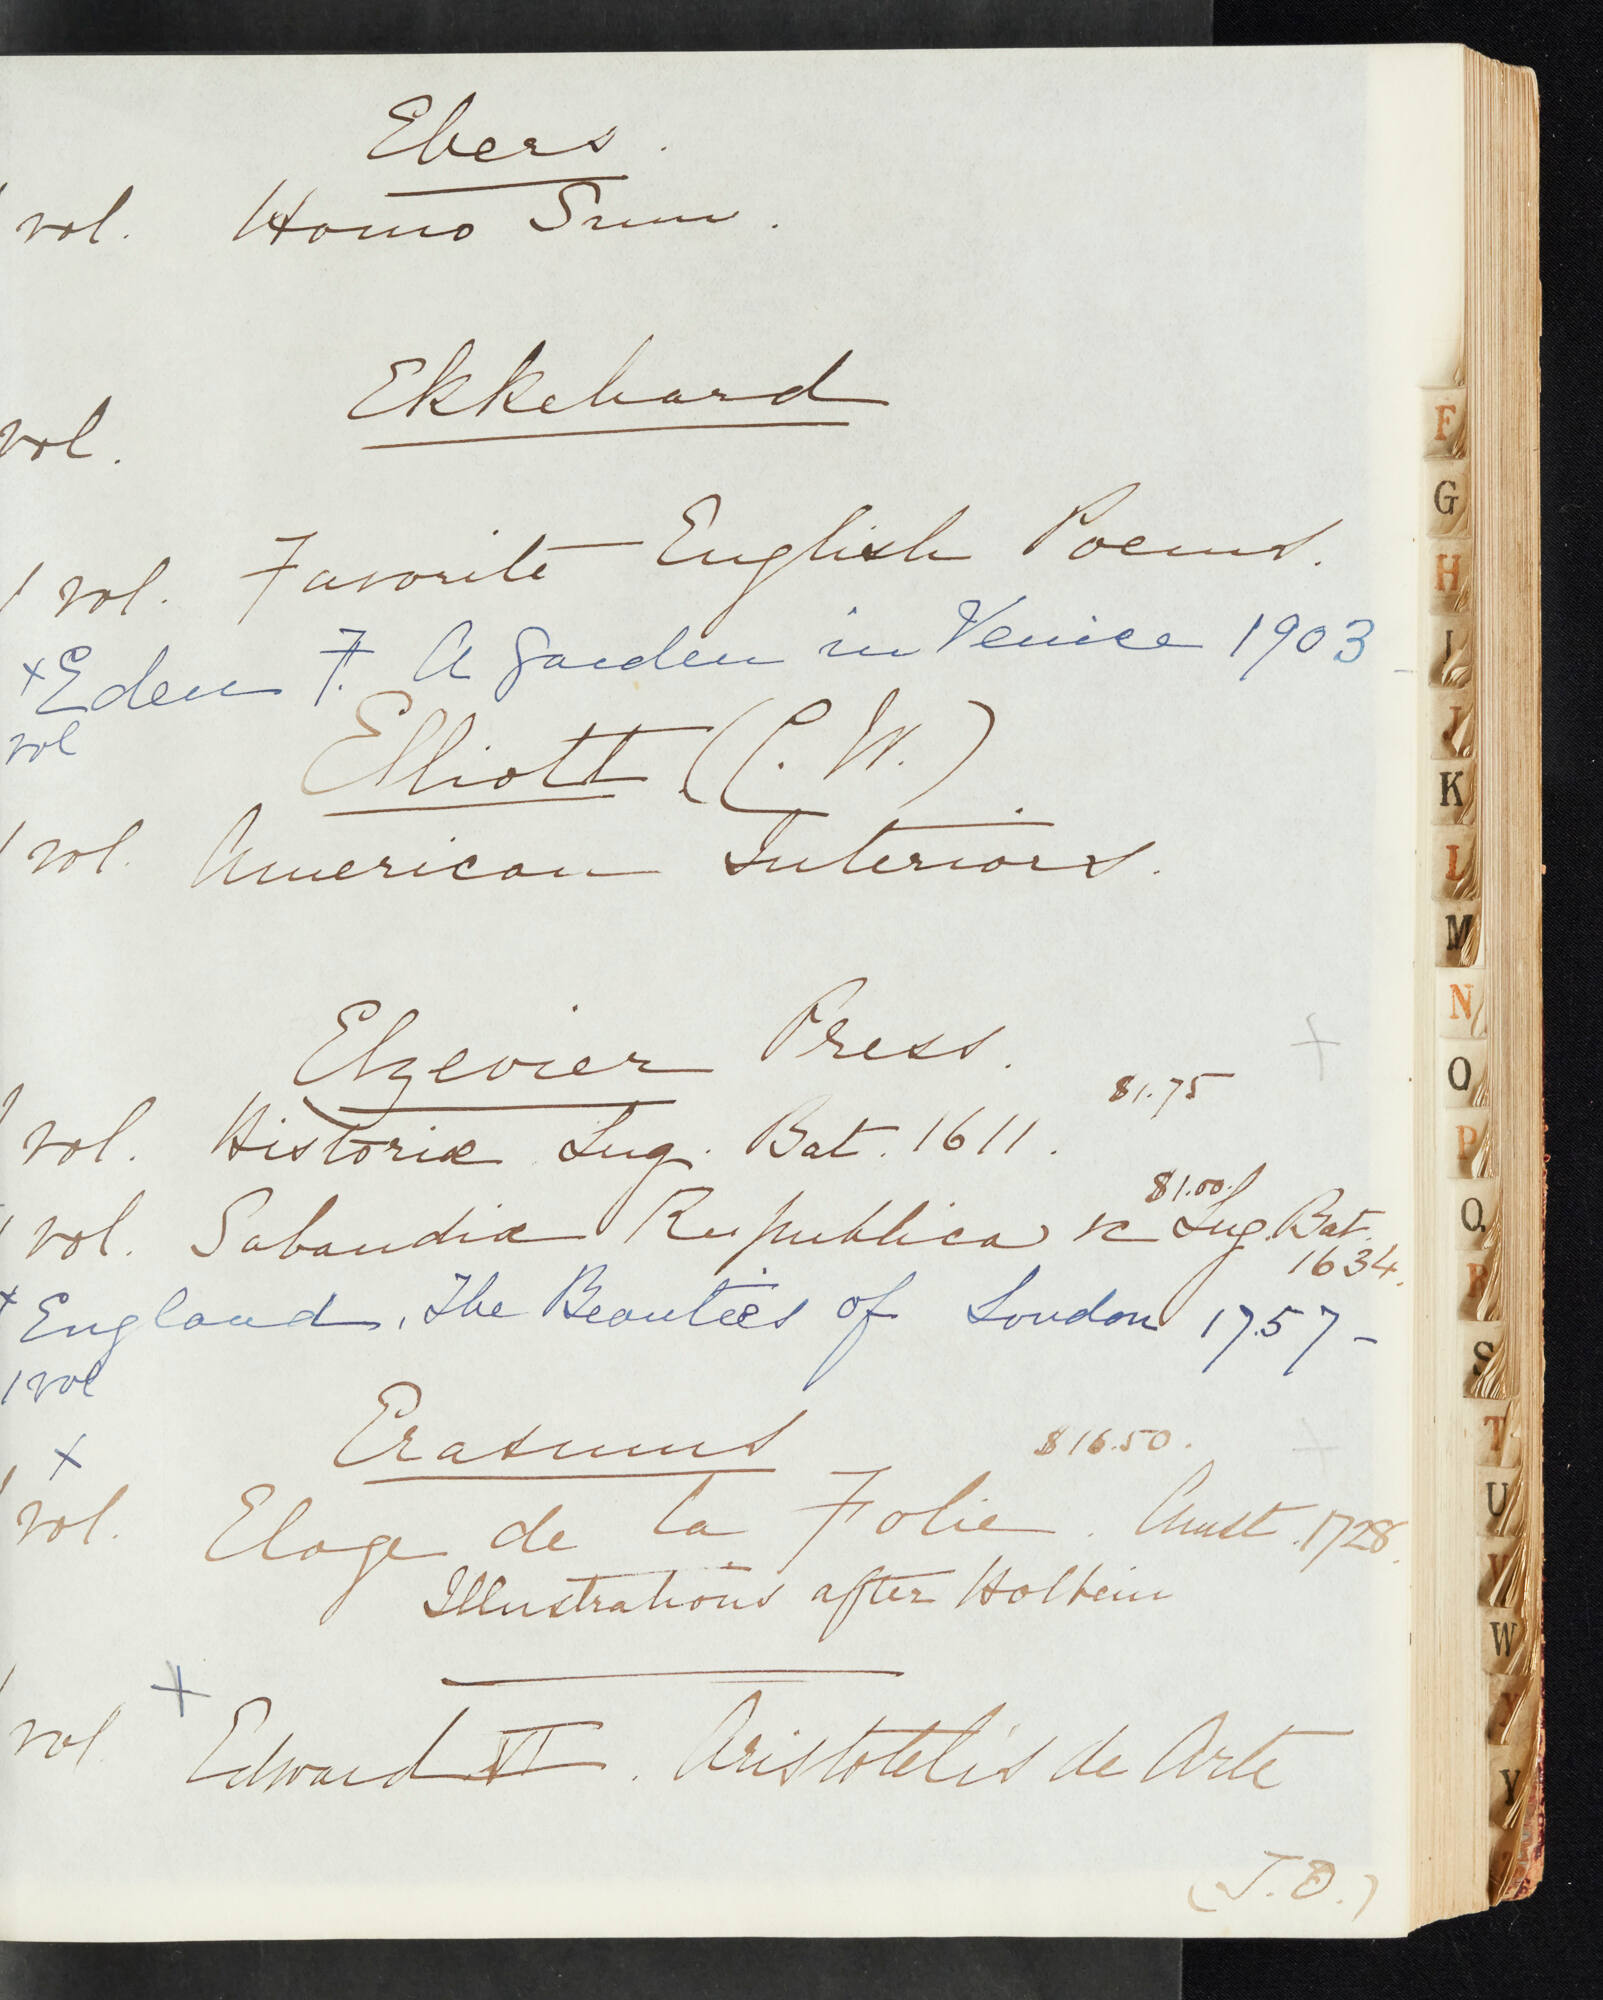 Ebers.
vol. Homo Sum.
Ekkehard
vol.
1 vol. Favorite English Poems.
x Eden F. A Garden in Venice 1903
vol
Elliott (C. W.)
1 vol. American Interiors.
Elzevier Press. +
$1.75
vol. Historiæ Lug. Bat. 1611.
$1.00.
1 vol. Sabaudiæ Republica &c Lug. Bat.
1634.
x England, The Beauties of London 1757-
1 vol
Erasmus $16.50. +
x
vol. Eloge de la Folie. Amst. 1728.
Illustrations after Holbein
+
vol Edward VI. Aristotelis de Arte
(T.O.)
F
G
H
I
J
K
L
M
N
O
P
Q
R
S
T
U
V
W
Y